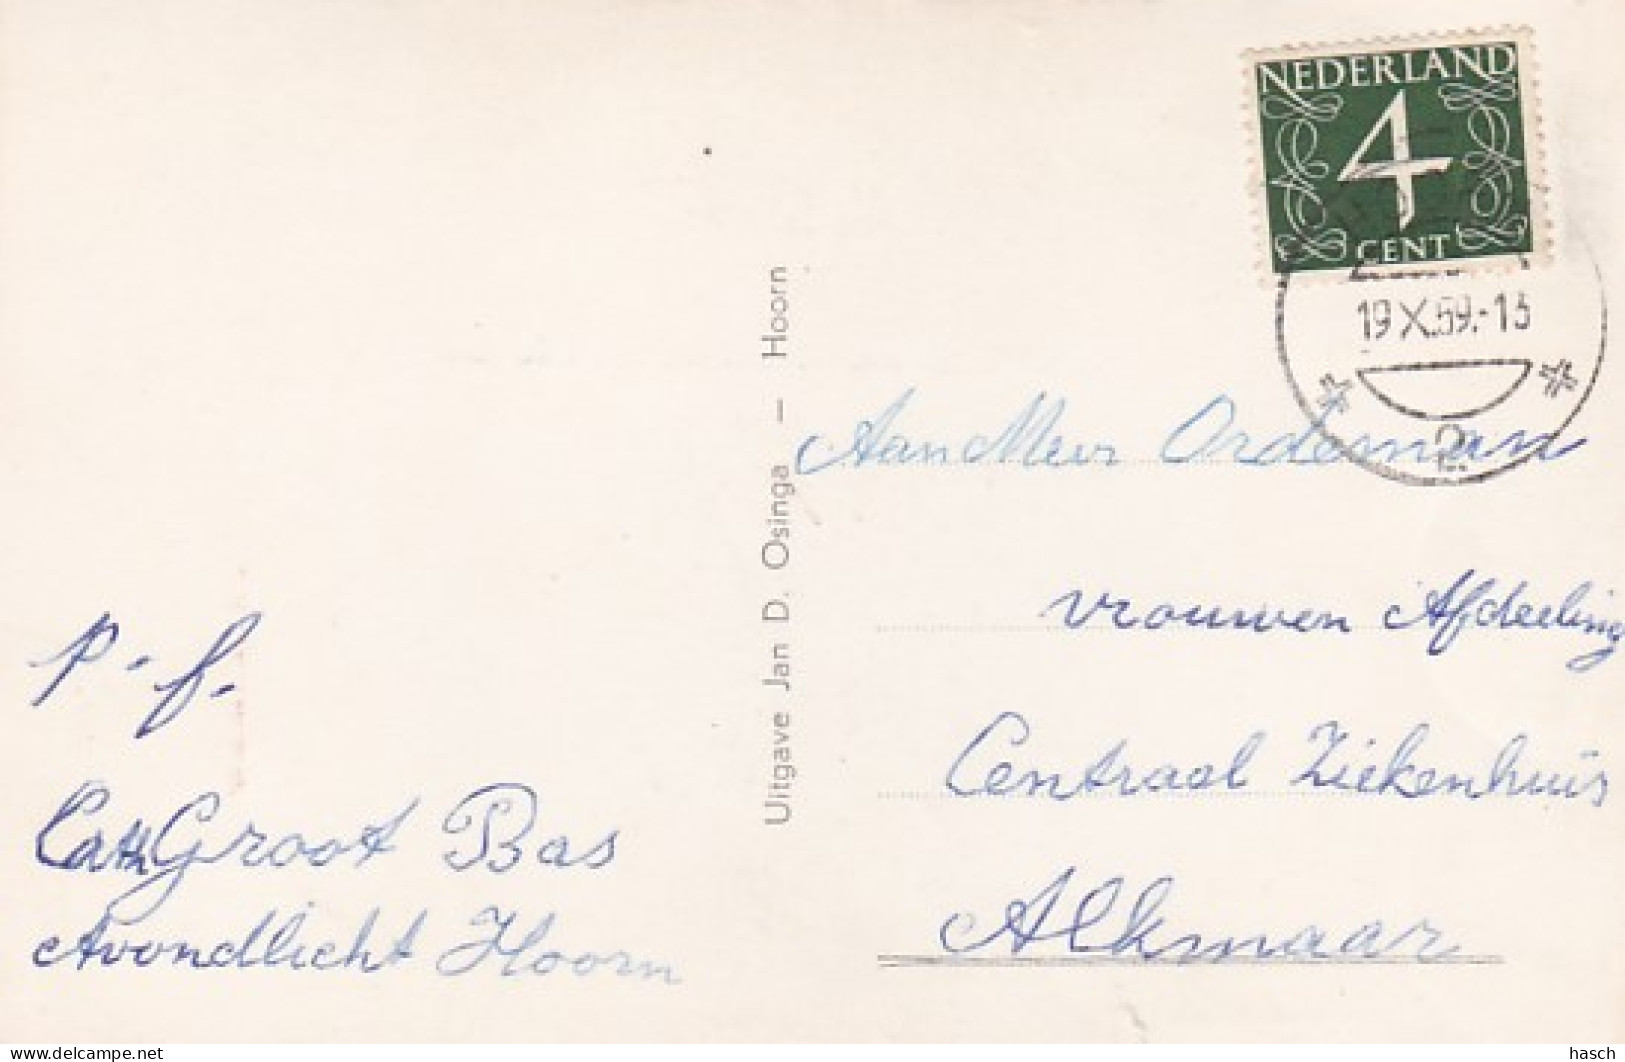 NEDERLAND
4
CENT
19 X.59.-13
Uitgave Jan D. Osinga — Hoorn
Aan Mevr Ordeman
vrouwen Afdeeling
Centraal Ziekenhuis
Alkmaar
p.f.
Cath Groot Bas
Avondlicht Hoorn
hasch